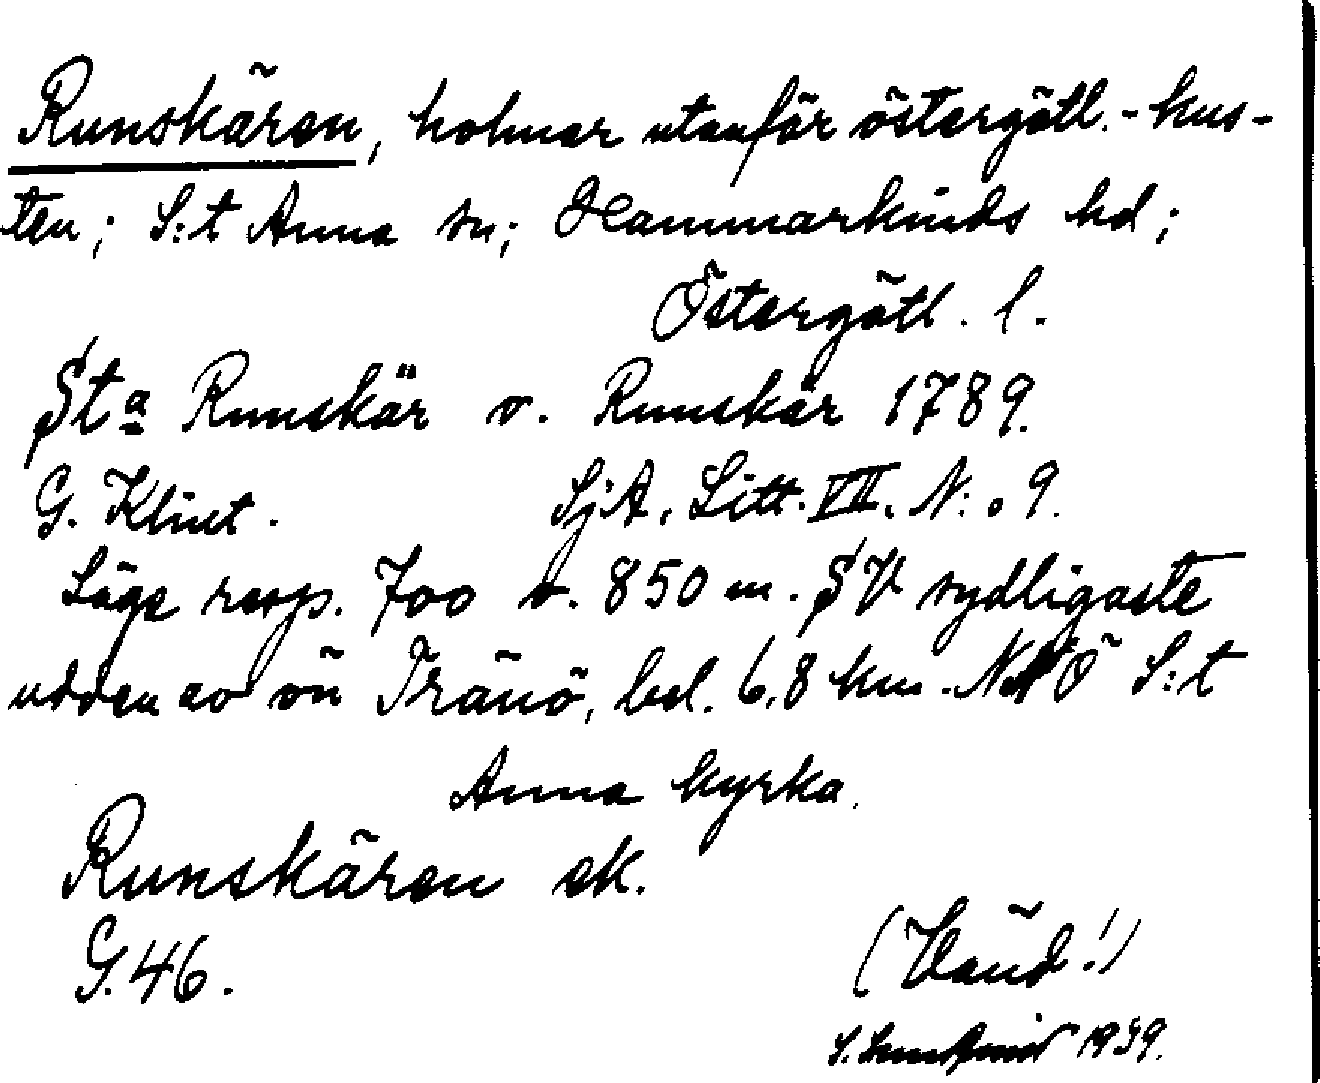 Runskären, holmar utanför östergötl.-kus-
ten; S:t Anna sn; Hammarkinds hd;
Östergötl. l.
St<sup>a</sup> Runskär o. Runskär 1789.
G. Klint. SjA, Litt. VII, N:o 9.
Läge resp. 700 o. 850 m. SV sydligaste
udden av ön Tränö, bel. 6,8 km. NNÖ S:t
Anna kyrka.
Runskären ek.
G. 46.
(Vänd!)
1939.